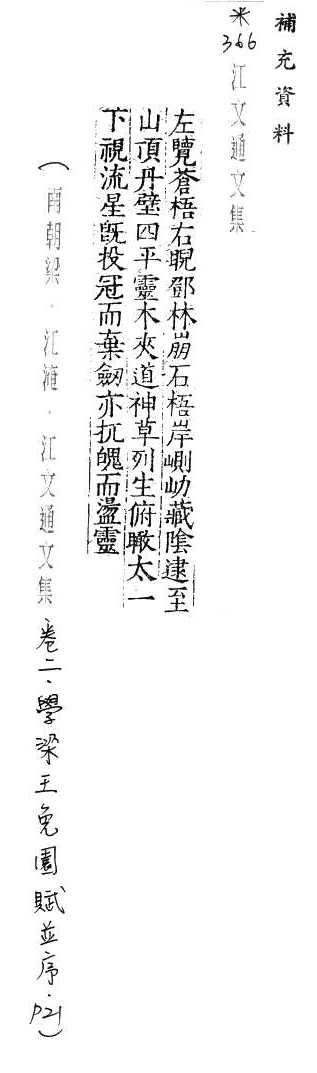 補充資料
※
366 江文通文集
左覽蒼梧右睨鄧林崩石梧岸崱屴藏陰逮至
山頂丹壁四平靈木夾道神草列生俯瞰太一
下視流星旣投冠而棄劒亦抗魄而盪靈
(南朝梁．江淹．江文通文集卷二．學梁王兔園賦並序．P21)